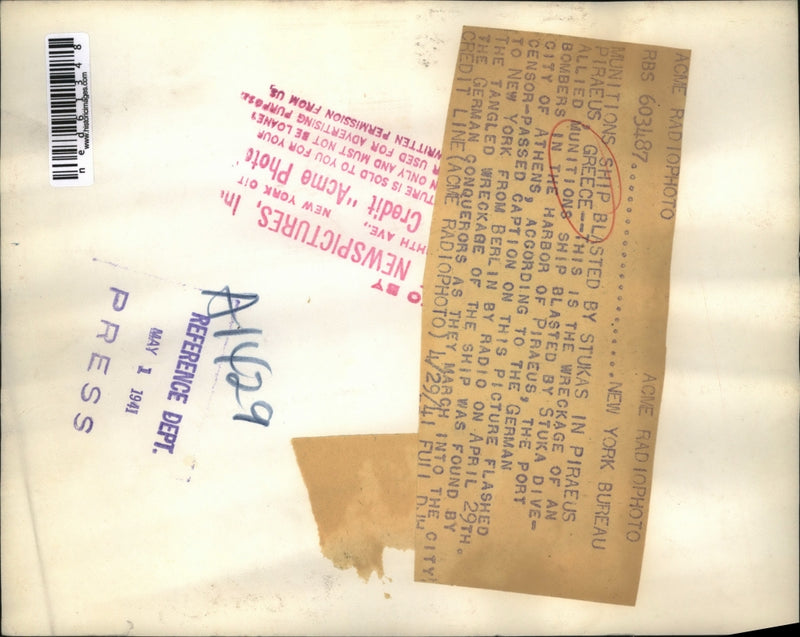 ACME RADIOPHOTO ACME RADIOPHOTO
RBS 603487..................NEW YORK BUREAU
MUNITIONS SHIP BLASTED BY STUKAS IN PIRAEUS
PIRAEUS, GREECE--THIS IS THE WRECKAGE OF AN
ALLIED MUNITIONS SHIP BLASTED BY STUKA DIVE-
BOMBERS IN THE HARBOR OF PIRAEUS, THE PORT
CITY OF ATHENS, ACCORDING TO THE GERMAN
CENSOR-PASSED CAPTION ON THIS PICTURE FLASHED
TO NEW YORK FROM BERLIN BY RADIO ON APRIL 29TH.
THE TANGLED WRECKAGE OF THE SHIP WAS FOUND BY
THE GERMAN CONQUERORS AS THEY MARCH INTO THE CITY
CREDIT LINE (ACME RADIOPHOTO) 4/29/41 FULL
BY
NEWSPICTURES, In
HTH AVE., NEW YORK CIT
Credit "Acme Photo
TURE IS SOLD TO YOU FOR YOUR
N ONLY AND MUST NOT BE LOANE
R USED FOR ADVERTISING PURPOSE
WRITTEN PERMISSION FROM US,
A1429
REFERENCE DEPT.
MAY 1 1941
PRESS
ned61348
www.historicimages.com